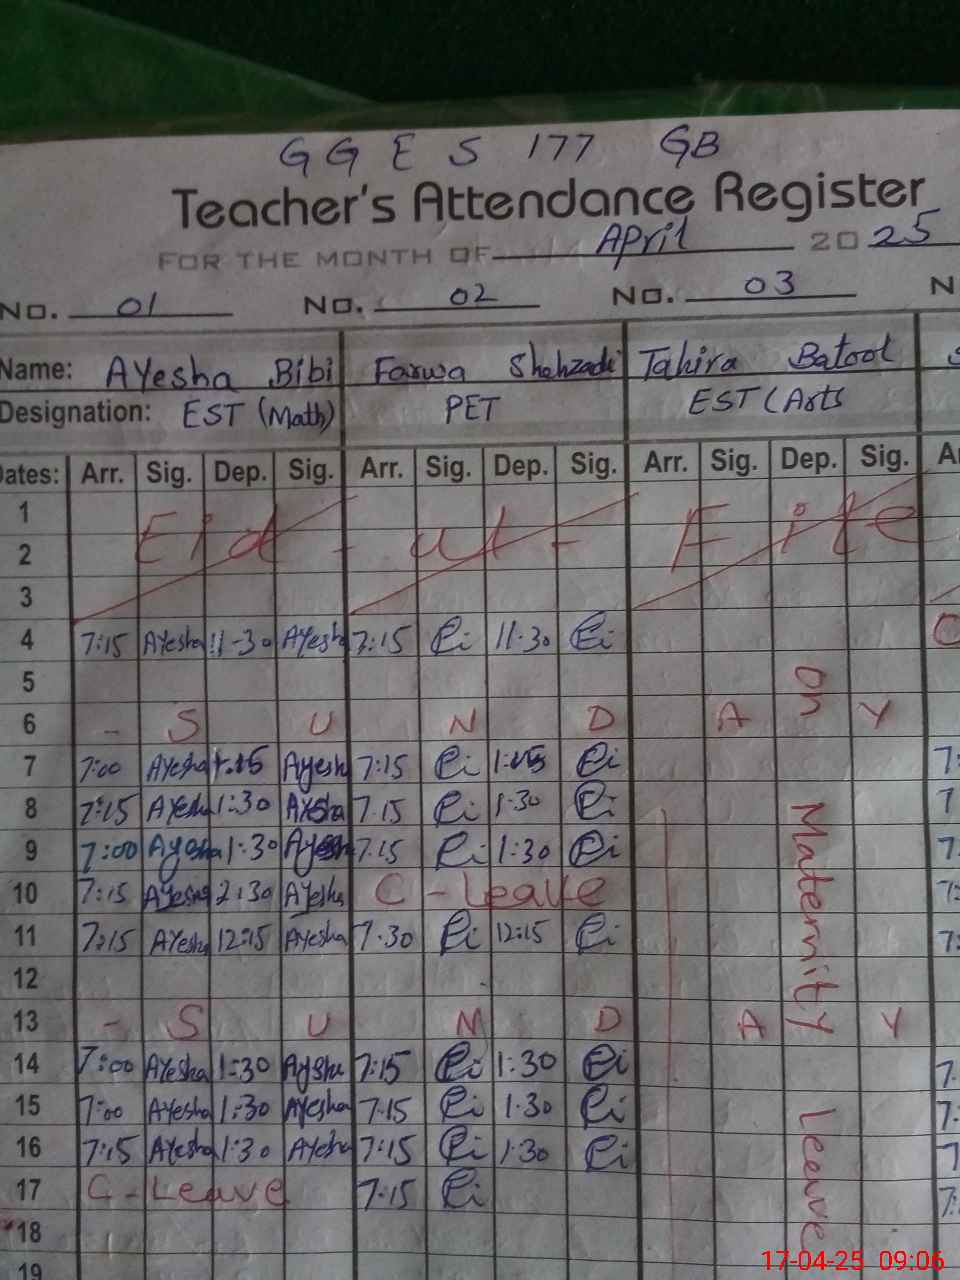 GGES 177 GB
Teacher's Attendance Register
FOR THE MONTH OF April 2025
No. 01 No. 02 No. 03 N
Name: AYesha Bibi Farwa Shahzadi Tahira Batool
Designation: EST (Math) PET EST (Arts
Dates: Arr. Sig. Dep. Sig. Arr. Sig. Dep. Sig. Arr. Sig. Dep. Sig.
1
Eid - ul - Fite
2
3
4 7:15 AYesha 11-30 AYesha 7:15 11.30
5
6 - S U N D A Y
7 7:00 AYesha AYesha 7:15
8 7:15 AYesha 1:30 AYesha 7.15 1:30
9 7:00 Ayesha 1:30 Ayesha 7.15 1:30
10 7:15 AYesha 2:30 AYesha C - Leave
11 7:15 AYesha 12:15 AYesha 7.30 12:15
12
13 - S U N D A Y
14 7:00 AYesha 1:30 AYesha 7:15 1:30
15 7:00 AYesha 1:30 AYesha 7.15 1.30
16 7:15 AYesha 1:30 AYesha 7:15 1:30
17 C - Leave 7.15
18
19
On Maternity Leave
17-04-25 09:06